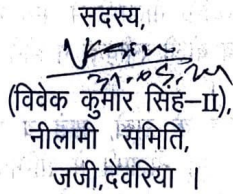 सदस्य,
(विवेक कुमार सिंह-II),
नीलामी समिति,
जजी,देवरिया ।